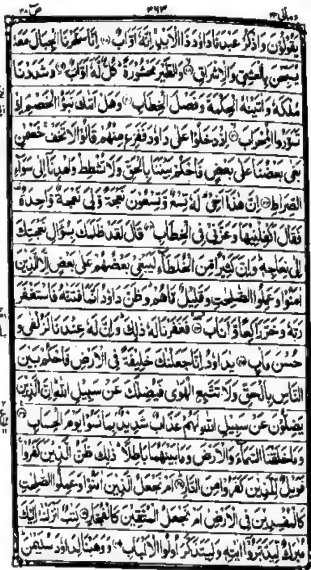 ومالی ٢٣ ٣٦٣ ص ٣٨
يقولون واذكر عبدنا داود ذا الايد انه اواب انا سخرنا الجبال معه
يسبحن بالعشي والاشراق والطير محشورة كل له اواب وشددنا
ملكه واتينه الحكمة وفصل الخطاب وهل اتك نبؤا الخصم اذ
تسوروا المحراب اذ دخلوا على داود ففزع منهم قالوا لا تخف خصمن
بغى بعضنا على بعض فاحكم بيننا بالحق ولا تشطط واهدنا الى سواء
الصراط ان هذا اخي له تسع وتسعون نعجة ولي نعجة واحدة
فقال اكفلنيها وعزني في الخطاب قال لقد ظلمك بسؤال نعجتك
الى نعاجه وان كثيرا من الخلطاء ليبغي بعضهم على بعض الا الذين
امنوا وعملوا الصلحت وقليل ما هم وظن داود انما فتنه فاستغفر
ربه وخر راكعا واناب فغفرنا له ذلك وان له عندنا لزلفى و
حسن ماب يداود انا جعلنك خليفة في الارض فاحكم بين
الناس بالحق ولا تتبع الهوى فيضلك عن سبيل الله ان الذين
يضلون عن سبيل الله لهم عذاب شديد بما نسوا يوم الحساب
وما خلقنا السماء والارض وما بينهما باطلا ذلك ظن الذين كفروا
فويل للذين كفروا من النار ام نجعل الذين امنوا وعملوا الصلحت
كالمفسدين في الارض ام نجعل المتقين كالفجار كتب انزلنه اليك
مبرك ليدبروا ايته وليتذكر اولوا الالباب ووهبنا لداود سليمن